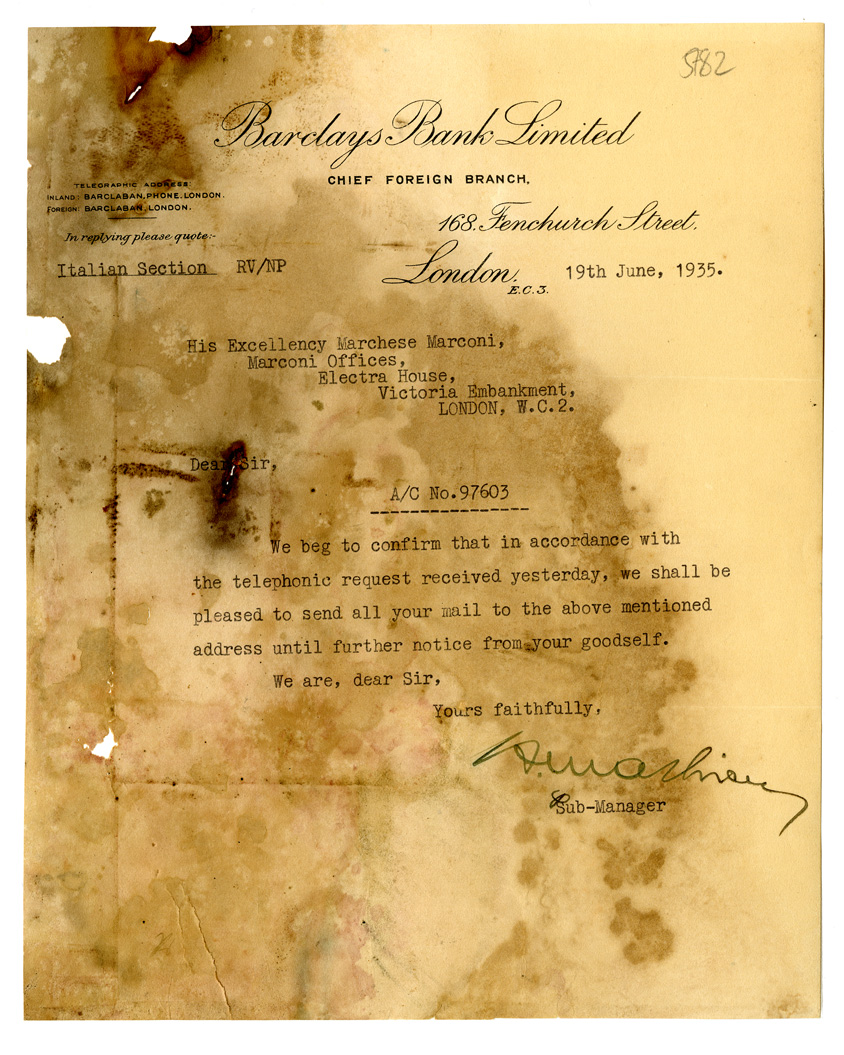 5782
Barclays Bank Limited
CHIEF FOREIGN BRANCH.
TELEGRAPHIC ADDRESS:
INLAND: BARCLABAN, PHONE, LONDON.
FOREIGN: BARCLABAN, LONDON.
168. Fenchurch Street.
In replying please quote:-
Italian Section RV/NP
London. 19th June, 1935.
E.C.3.
His Excellency Marchese Marconi,
Marconi Offices,
Electra House,
Victoria Embankment,
LONDON, W.C.2.
Dear Sir,
A/C No.97603
We beg to confirm that in accordance with
the telephonic request received yesterday, we shall be
pleased to send all your mail to the above mentioned
address until further notice from your goodself.
We are, dear Sir,
Yours faithfully,
Sub-Manager